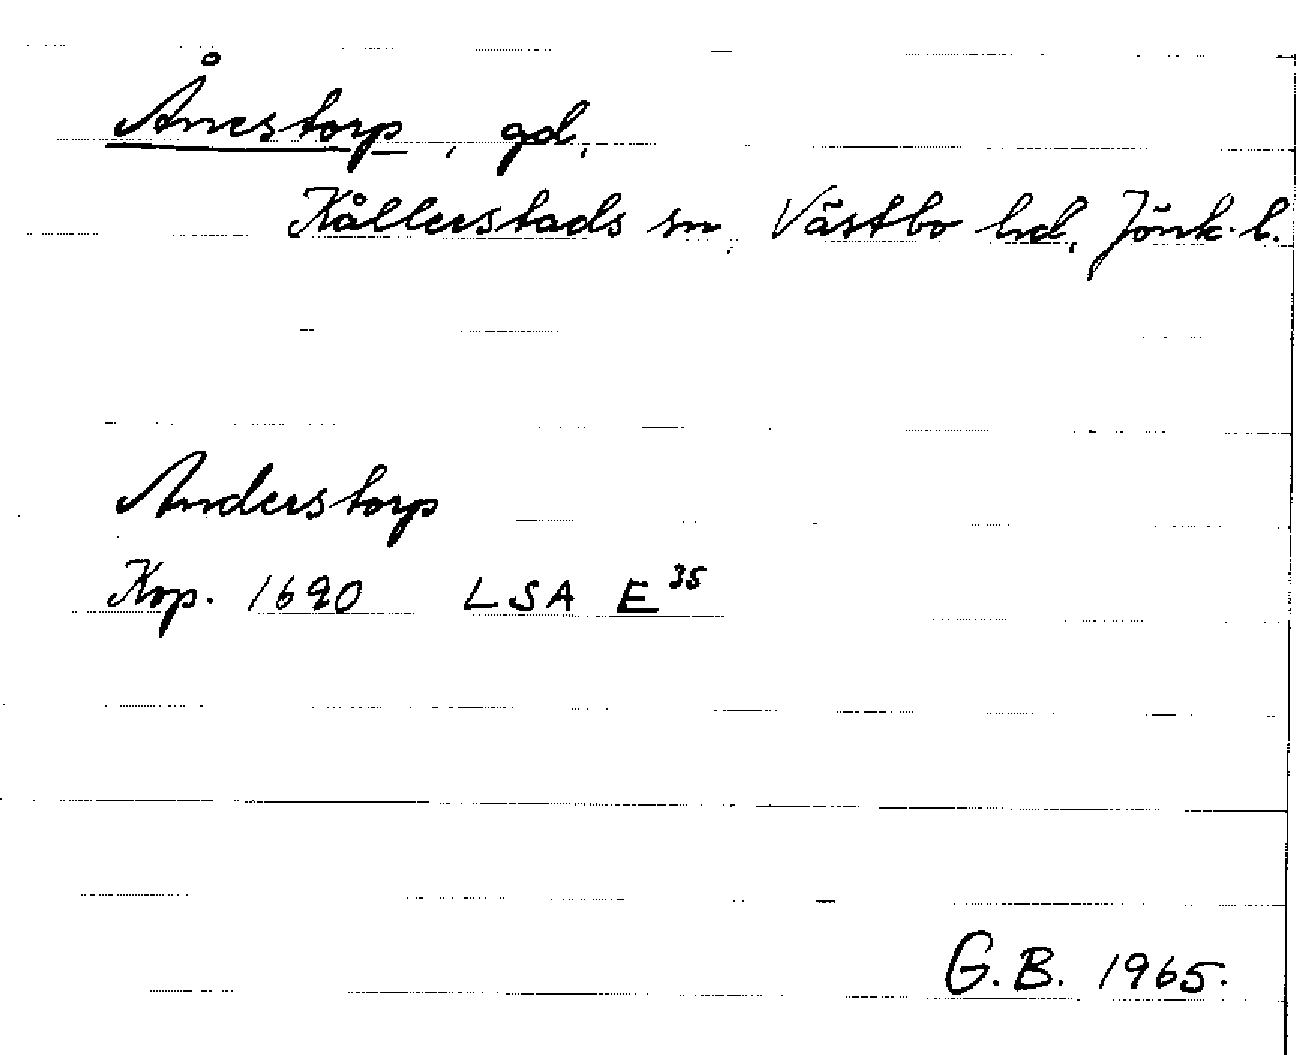 Ånestorp, gd,
Kållerstads sn, Västbo hd, Jönk. l.
Anderstorp
Kop. 1690 LSA E 35
G.B. 1965.